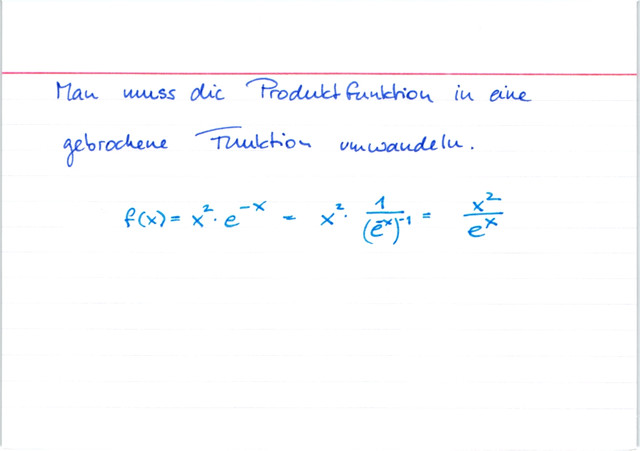 Man muss die Produktfunktion in eine
gebrochene Funktion umwandeln.
f(x) = x² · e^(-x) = x² · 1/(e^(-x))^(-1) = x²/e^x